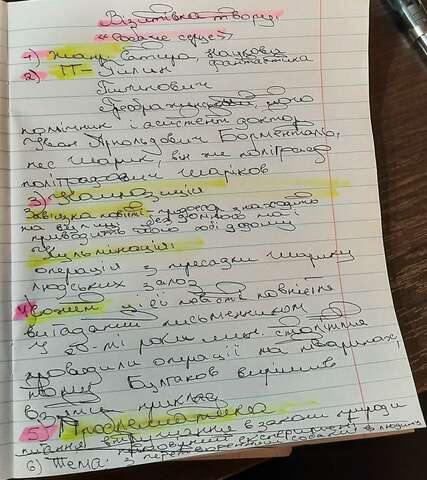 Візитівка твору:
«Собаче серце»
1) Жанр Сатира, наукова
2) П – Пилип фантастика
Пилипович
Преображенський, його
помічник і асистент доктор
Іван Арнольдович Борменталь,
пес Шарик, він же Поліграф
Поліграфович Шариков
3) Композиція
Зав'язка повісті: професор знаходить
на вулиці бездомного пса і
приводить його собі додому
Кульмінація:
операція з пересадки Шарику
людських залоз
4) цієї повісті повністю
вигаданий письменником
У 20-ті роки мин. століття
проводили операції на тваринах,
Булгаков вирішив
взяти приклад
5) Проблематика
питання втручання в закони природи
6) Тема: з перетворення собаки в людину